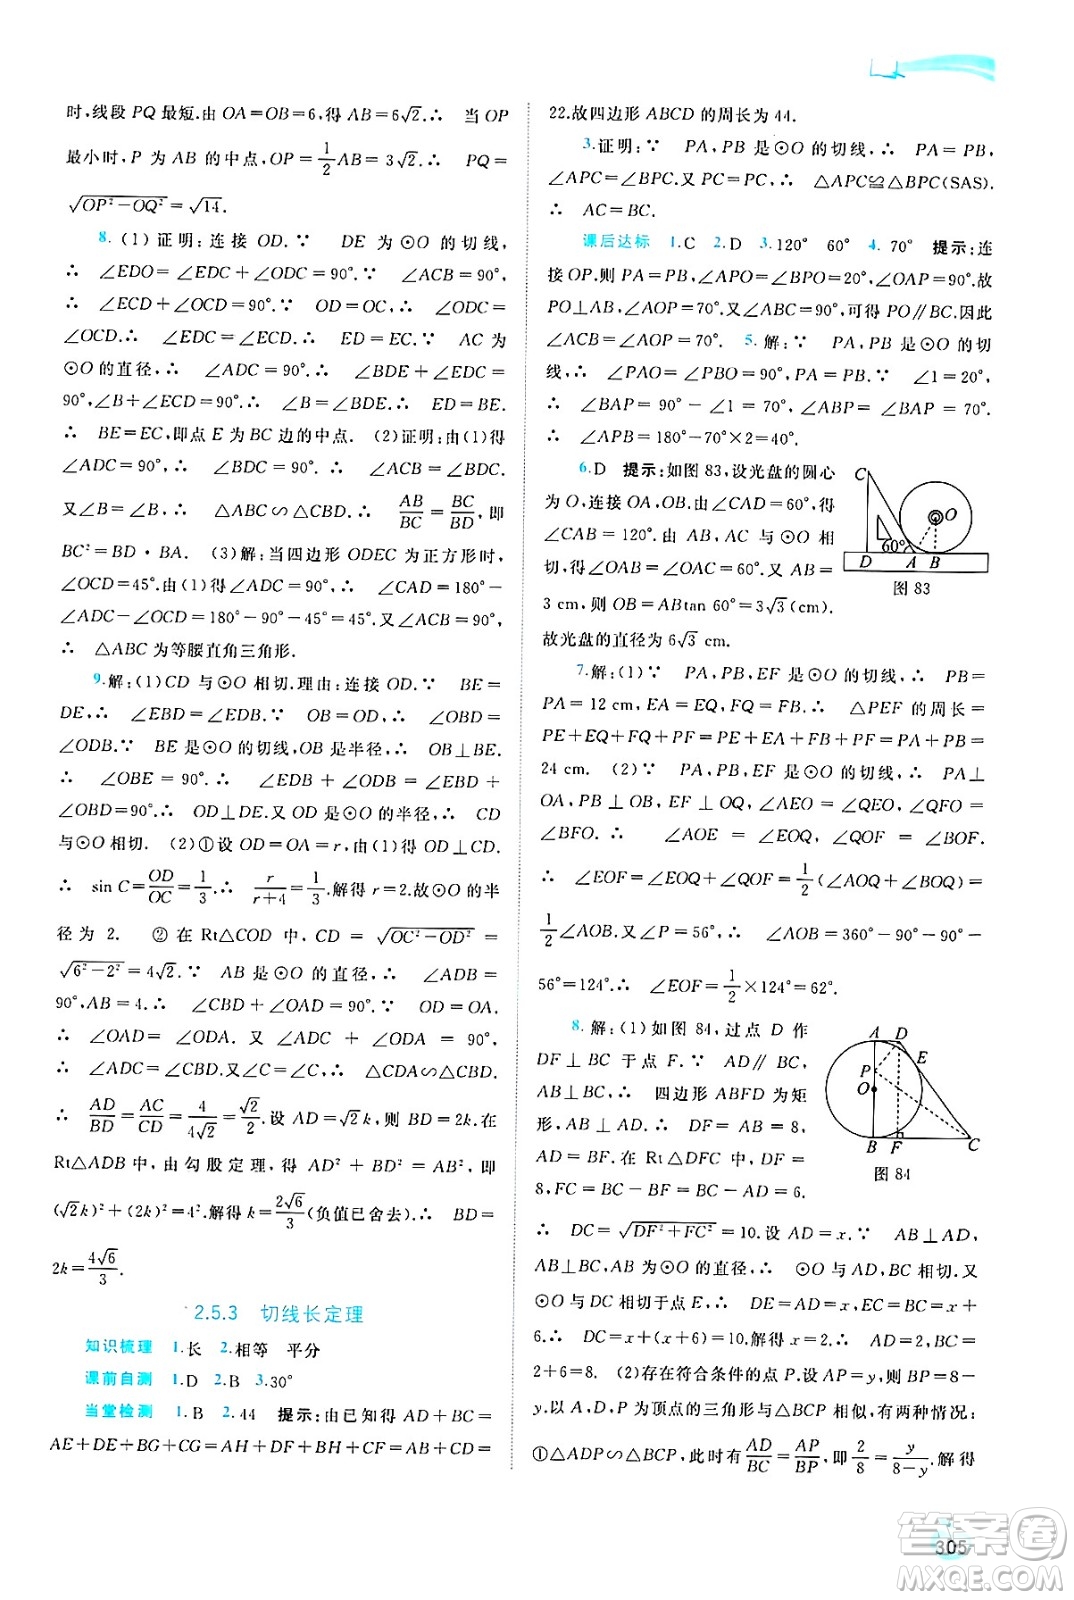 时,线段 PQ 最短.由 OA=OB=6,得 AB=6√2.∴ 当 OP
最小时,P 为 AB 的中点,OP=1/2AB=3√2.∴ PQ=
√(OP²-OQ²)=√14.
8.(1)证明:连接 OD.∵ DE 为⊙O 的切线,
∴ ∠EDO=90°.∴ ∠EDC+∠ODC=90°.∵ ∠ECO=
90°,∴ ∠ECD+∠OCD=90°.∵ OD=OC,∴ ∠ODC=
∠OCD.∴ ∠EDC=∠ECD.∴ ED=EC.∵ AC 为
⊙O 的直径,∴ ∠ADC=90°.∴ ∠BDE+∠EDC=
90°,∠B+∠ECD=90°.∴ ∠B=∠BDE.∴ ED=BE.
∴ BE=EC,即点 E 为 BC 边的中点. (2)证明:由(1)得
∠ADC=90°,∴ ∠BDC=90°.∵ ∠ACB=90°,∠B=∠B,
又∠B=∠B,∴ △ABC∽△CBD.∴ AB/BC=BC/BD,即
BC²=BD·BA. (3)解:当四边形 ODEC 为正方形时,
∠OCD=45°.由(1)得∠ADC=90°,∴ ∠CAD=180°-
∠ADC-∠OCD=180°-90°-45°=45°.又∠ACB=90°,
∴ △ABC 为等腰直角三角形.
9.解:(1)CD 与⊙O 相切.理由:连接 OD.∵ BE=
DE,∴ ∠EBD=∠EDB.∵ OB=OD,∴ ∠OBD=
∠ODB.∵ BE 是⊙O 的切线,OB 是半径,∴ OB⊥BE.
∴ ∠OBE=90°.∴ ∠EDB+∠ODB=∠EBD+
∠OBD=90°.∴ OD⊥DE.又 OD 是⊙O 的半径,∴ CD
与⊙O 相切. (2)①设 OD=OA=r,由(1)得 OD⊥CD.
∴ sin C=OD/OC=1/3.∴ r/(r+4)=1/3.解得 r=2.故⊙O 的半
径为 2. ②在 Rt△COD 中,CD=√(OC²-OD²)=
√(6²-2²)=4√2.∵ AB 是⊙O 的直径,∴ ∠ADB=
90°,AB=4.∴ ∠CBD+∠OAD=90°.∵ OD=OA.
∴ ∠OAD=∠ODA.又∠ADC+∠ODA=90°,
∴ ∠ADC=∠CBD.又∠C=∠C,∴ △CDA∽△CBD.
∴ AD/BD=AC/CD=4/(4√2)=√2/2.设 AD=√2k,则 BD=2k.在
Rt△ADB 中,由勾股定理,得 AD²+BD²=AB²,即
(√2k)²+(2k)²=4².解得 k=2√6/3(负值已舍去).∴ BD=
2k=4√6/3.
2.5.3 切线长定理
知识梳理 1.长 2.相等 平分
课前自测 1.D 2.B 3.30°
当堂检测 1.B 2.44 提示:由已知得 AD+BC=
AE+DE+BG+CG=AH+DF+BH+CF=AB+CD=
22.故四边形 ABCD 的周长为 44.
3.证明:∵ PA,PB 是⊙O 的切线,∴ PA=PB,
∠APC=∠BPC.又 PC=PC,∴ △APC≌△BPC(SAS).
∴ AC=BC.
课后达标 1.C 2.D 3.120° 60° 4.70° 提示:连
接 OP,则 PA=PB,∠APO=∠BPO=20°,∠OAP=90°.故
PO⊥AB,∠AOP=70°.又∠ABC=90°,可得 PO∥BC.因此
∠ACB=∠AOP=70°. 5.解:∵ PA,PB 是⊙O 的切
线,∴ ∠PAO=∠PBO=90°.∴ PA=PB.∵ ∠1=20°,
∴ ∠BAP=90°-∠1=70°,∴ ∠BAP=∠ABP=70°.
∴ ∠APB=180°-70°×2=40°.
6.D 提示:如图 83,设光盘的圆心
为 O,连接 OA,OB.由∠CAD=60°,得
∠CAB=120°.由 AB,AC 与⊙O 相
切,得∠OAB=∠OAC=60°.又 AB=
3 cm,则 OB=ABtan 60°=3√3(cm).
故光盘的直径为 6√3 cm.
C
O
60°
D A B
图 83
7.解:(1)∵ PA,PB,EF 是⊙O 的切线,∴ PB=
PA=12 cm,EA=EQ,FQ=FB.∴ △PEF 的周长=
PE+EQ+FQ+PF=PE+EA+FB+PF=PA+PB=
24 cm. (2)∵ PA,PB,EF 是⊙O 的切线,∴ PA⊥
OA,PB⊥OB,EF⊥OQ,∠AEO=∠QEO,∠QFO
=∠BFO.∴ ∠AOE=∠EOQ,∠QOF=∠BOF.
∴ ∠EOF=∠EOQ+∠QOF=1/2(∠AOQ+∠BOQ)=
1/2∠AOB.又∠P=56°,∴ ∠AOB=360°-90°-90°-
56°=124°.∴ ∠EOF=1/2×124°=62°.
8.解:(1)如图 84,过点 D 作
DF⊥BC 于点 F.∵ AD∥BC,
∴ 四边形 ABFD 为矩
形.∴ DF=AB=8,
AD=BF.在 Rt△DFC 中,DF=
8,FC=BC-BF=BC-AD=6.
A D
E
P
O
B F C
图 84
∴ DC=√(DF²+FC²)=10.设 AD=x.∵ AB⊥AD,
AB⊥BC,∴ ⊙O 与 AD,BC 相切.又
⊙O 与 DC 相切于点 E,∴ DE=AD=x,CE=BC=x+
6.∴ DC=x+(x+6)=10.解得 x=2.∴ AD=2,BC=
2+6=8. (2)存在符合条件的点 P.设 AP=y,则 BP=8-
y.以 A,D,P 为顶点的三角形与△BCP 相似,有两种情况:
①△ADP∽△BCP.此时有AD/BC=AP/BP,即2/8=y/(8-y).解得
305
答案圈
MXQE.COM